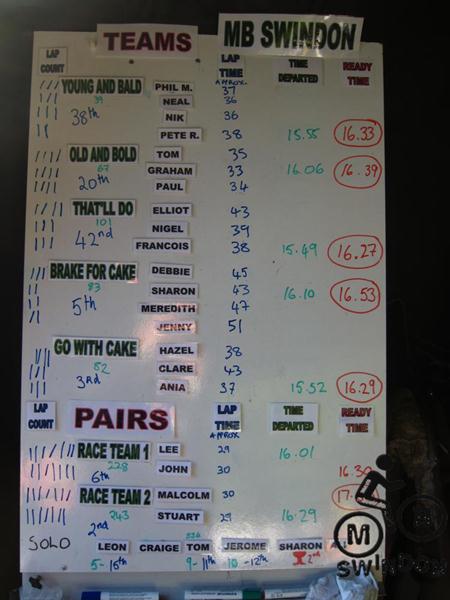 TEAMS MB SWINDON
LAP COUNT LAP TIME APPROX. TIME DEPARTED READY TIME
YOUNG AND BALD PHIL M. 37
39 NEAL 36
38th NIK 36
PETE R. 38 15.55 16.33
OLD AND BOLD TOM 35
67 GRAHAM 33 16.06 16.39
20th PAUL 34
THAT'LL DO ELLIOT 43
101 NIGEL 39
42nd FRANCOIS 38 15.49 16.27
BRAKE FOR CAKE DEBBIE 45
83 SHARON 43 16.10 16.53
5th MEREDITH 47
JENNY 51
GO WITH CAKE HAZEL 38
52 CLARE 43
3rd ANIA 37 15.52 16.29
LAP COUNT PAIRS LAP TIME APPROX TIME DEPARTED READY TIME
RACE TEAM 1 LEE 29 16.01
228 JOHN 30 16.30
6th
RACE TEAM 2 MALCOLM 30
243 STUART 29 16.29
2nd
SOLO LEON CRAIGE TOM JEROME SHARON
5 - 15th 9 - 11th 10 - 12th 2nd
M
SWINDON